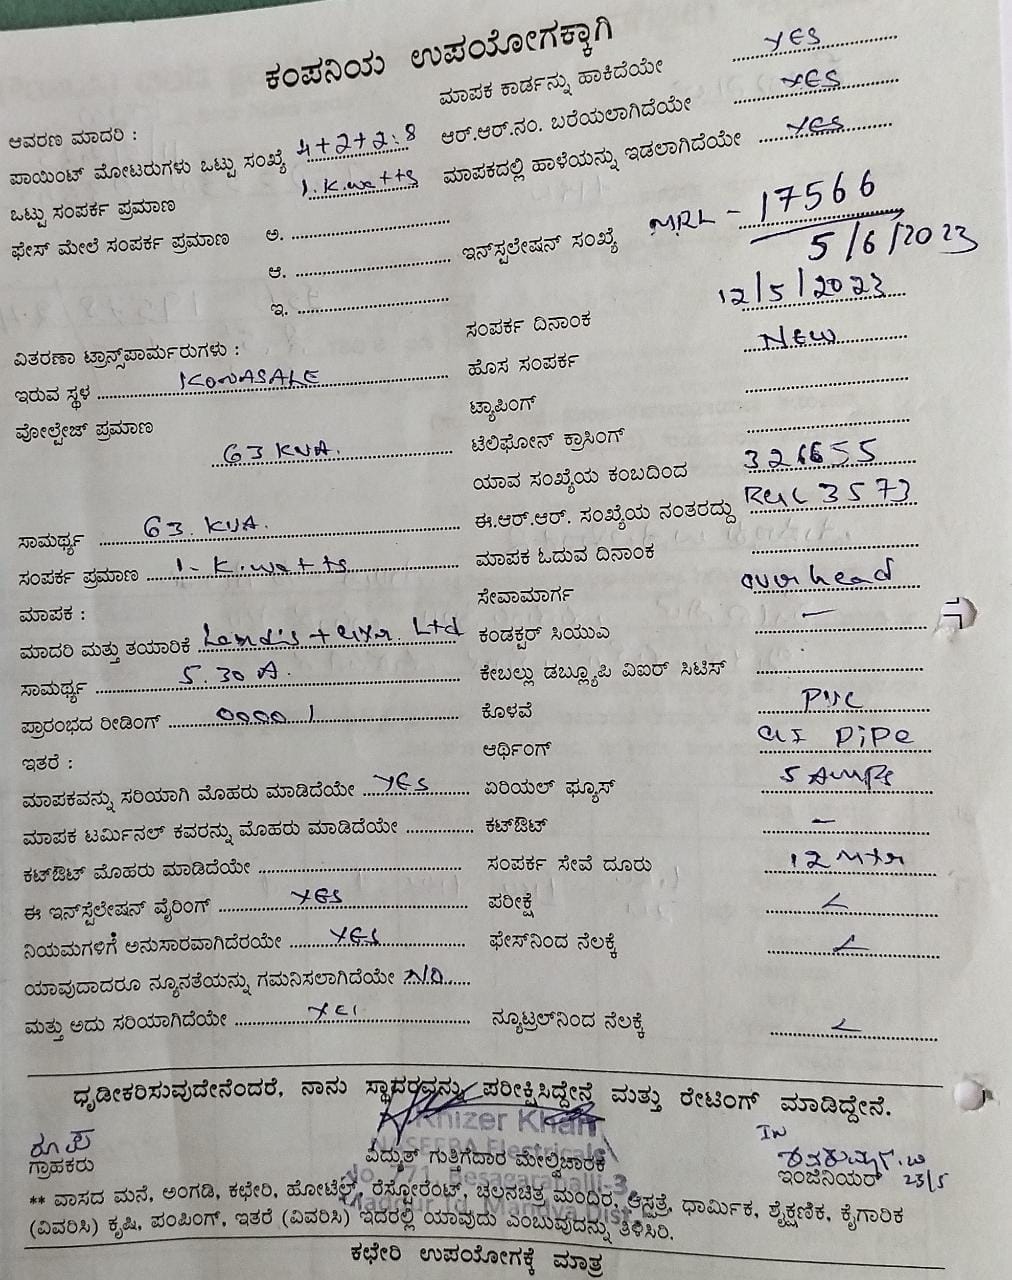 ಕಂಪನಿಯ ಉಪಯೋಗಕ್ಕಾಗಿ
ಮಾಪಕ ಕಾರ್ಡನ್ನು ಹಾಕಿದೆಯೇ YES
ಆವರಣ ಮಾದರಿ :
ಆರ್.ಆರ್.ನಂ. ಬರೆಯಲಾಗಿದೆಯೇ YES
ಪಾಯಿಂಟ್ ಮೋಟರುಗಳು ಒಟ್ಟು ಸಂಖ್ಯೆ 4+2+2:8
ಮಾಪಕದಲ್ಲಿ ಹಾಳೆಯನ್ನು ಇಡಲಾಗಿದೆಯೇ YES
ಒಟ್ಟು ಸಂಪರ್ಕ ಪ್ರಮಾಣ 1.K.watts
ಫೇಸ್ ಮೇಲೆ ಸಂಪರ್ಕ ಪ್ರಮಾಣ ಅ.
ಇನ್‌ಸ್ಪಲೇಷನ್ ಸಂಖ್ಯೆ MRL - 17566
5/6/2023
ಆ.
ಇ.
ಸಂಪರ್ಕ ದಿನಾಂಕ 12/5/2023
ವಿತರಣಾ ಟ್ರಾನ್ಸ್‌ಪಾರ್ಮರುಗಳು :
ಹೊಸ ಸಂಪರ್ಕ NEW
ಇರುವ ಸ್ಥಳ KONASALE
ಟ್ಯಾಪಿಂಗ್
ವೋಲ್ಟೇಜ್ ಪ್ರಮಾಣ 63 KVA.
ಟೆಲಿಫೋನ್ ಕ್ರಾಸಿಂಗ್
ಯಾವ ಸಂಖ್ಯೆಯ ಕಂಬದಿಂದ 326655
ಸಾಮರ್ಥ್ಯ 63. KVA.
ಈ.ಆರ್.ಆರ್. ಸಂಖ್ಯೆಯ ನಂತರದ್ದು 3573
ಸಂಪರ್ಕ ಪ್ರಮಾಣ 1- K.watts
ಮಾಪಕ ಓದುವ ದಿನಾಂಕ
ಮಾಪಕ :
ಸೇವಾಮಾರ್ಗ overhead
ಮಾದರಿ ಮತ್ತು ತಯಾರಿಕೆ Landis + Gyr. Ltd
ಕಂಡಕ್ಟರ್ ಸಿಯುಎ –
ಸಾಮರ್ಥ್ಯ 5.30 A.
ಕೇಬಲ್ಲು ಡಬ್ಲ್ಯೂಪಿ ವಿಐರ್ ಸಿಟಿಸ್
ಪ್ರಾರಂಭದ ರೀಡಿಂಗ್ 00001
ಕೊಳವೆ PVC
ಇತರೆ :
ಆರ್ಥಿಂಗ್ GI PiPe
ಮಾಪಕವನ್ನು ಸರಿಯಾಗಿ ಮೊಹರು ಮಾಡಿದೆಯೇ YES
ಏರಿಯಲ್ ಫ್ಯೂಸ್ 5 Amps
ಮಾಪಕ ಟರ್ಮಿನಲ್ ಕವರನ್ನು ಮೊಹರು ಮಾಡಿದೆಯೇ
ಕಟ್‌ಔಟ್ –
ಕಟ್‌ಔಟ್ ಮೊಹರು ಮಾಡಿದೆಯೇ
ಸಂಪರ್ಕ ಸೇವೆ ದೂರು 12 Mtr
ಈ ಇನ್‌ಸ್ಟೆಲೇಷನ್ ವೈರಿಂಗ್ YES
ಪರೀಕ್ಷೆ
ನಿಯಮಗಳಿಗೆ ಅನುಸಾರವಾಗಿದೆರಯೇ YES
ಫೇಸ್‌ನಿಂದ ನೆಲಕ್ಕೆ
ಯಾವುದಾದರೂ ನ್ಯೂನತೆಯನ್ನು ಗಮನಿಸಲಾಗಿದೆಯೇ NO
ಮತ್ತು ಅದು ಸರಿಯಾಗಿದೆಯೇ YES
ನ್ಯೂಟ್ರಲ್‌ನಿಂದ ನೆಲಕ್ಕೆ
ಧೃಡೀಕರಿಸುವುದೇನೆಂದರೆ, ನಾನು ಸ್ಥಾವರವನ್ನು ಪರೀಕ್ಷಿಸಿದ್ದೇನೆ ಮತ್ತು ರೇಟಿಂಗ್ ಮಾಡಿದ್ದೇನೆ.
Khizer Khan
NASEEBA Electricals
ಗ್ರಾಹಕರು
ವಿದ್ಯುತ್ ಗುತ್ತಿಗೆದಾರ ಮೇಲ್ವಿಚಾರಕ
ಇಂಜಿನಿಯರ್ 23/5
** ವಾಸದ ಮನೆ, ಅಂಗಡಿ, ಕಛೇರಿ, ಹೋಟೆಲ್, ರೆಸ್ಟೋರೆಂಟ್, ಚಲನಚಿತ್ರ ಮಂದಿರ, ಆಸ್ಪತ್ರೆ, ಧಾರ್ಮಿಕ, ಶೈಕ್ಷಣಿಕ, ಕೈಗಾರಿಕ
(ವಿವರಿಸಿ) ಕೃಷಿ, ಪಂಪಿಂಗ್, ಇತರೆ (ವಿವರಿಸಿ) ಇದರಲ್ಲಿ ಯಾವುದು ಎಂಬುವುದನ್ನು ತಿಳಿಸಿರಿ.
ಕಛೇರಿ ಉಪಯೋಗಕ್ಕೆ ಮಾತ್ರ